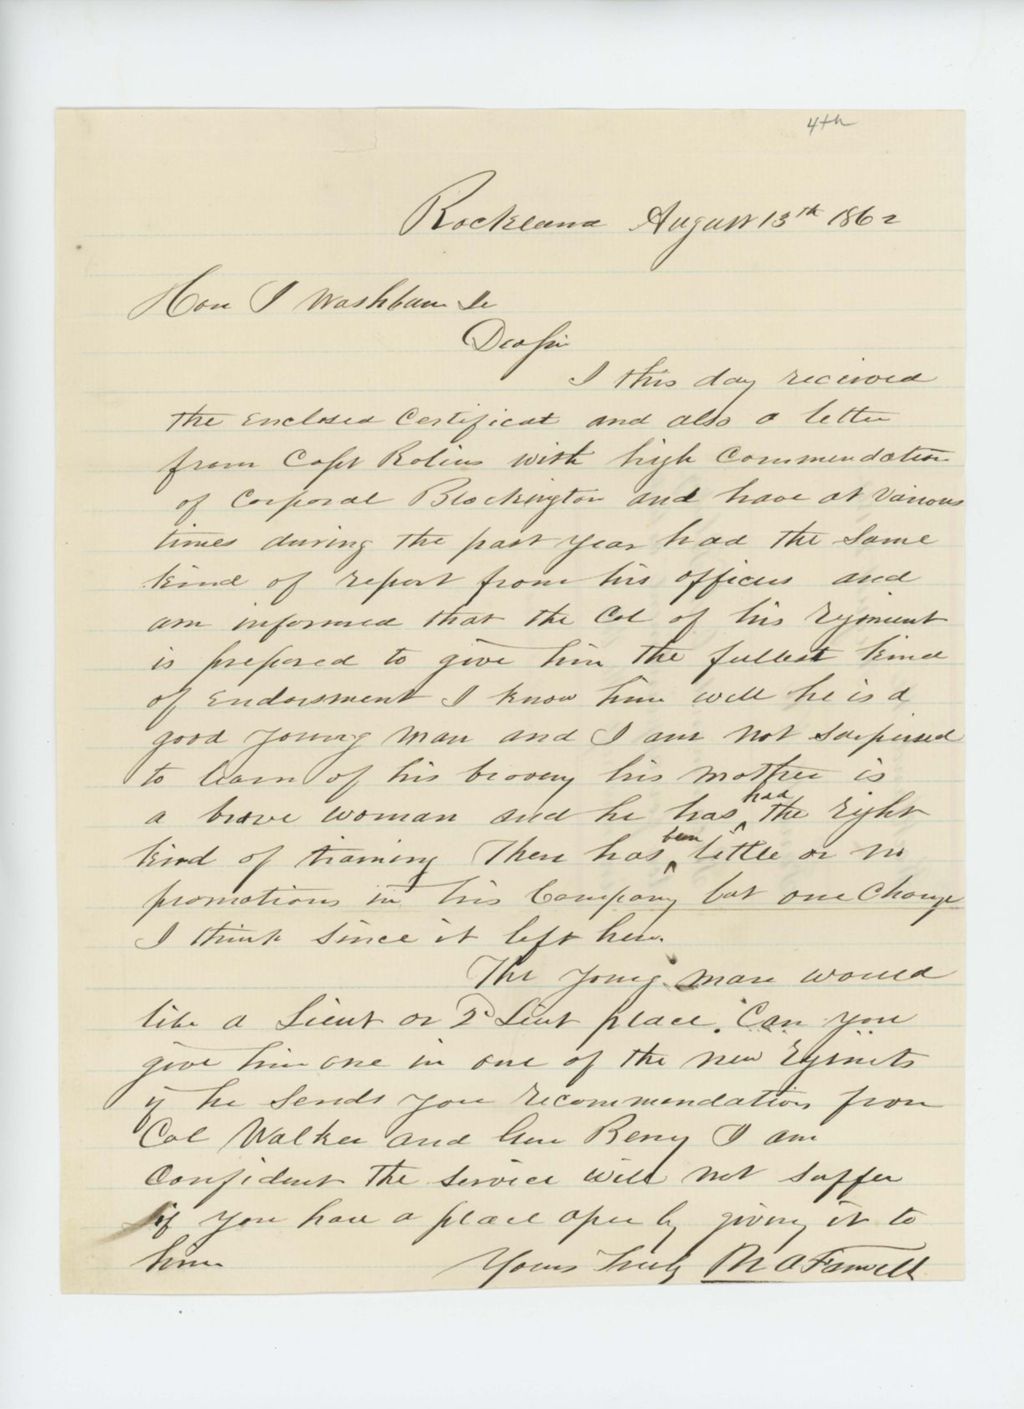 4th
Rockland August 13th 1862
Hon I Washburn Jr
Dear Sir
I this day recieved
the enclosed Certificat and also a letter
from Capt Robins with high Commendation
of Corporal Blackington and have at various
times during the past year had the same
kind of report from his officers and
am informed that the Col of his regiment
is prepared to give him the fullest kind
of endorsment I know him well he is a
good young man and I am not surprised
to learn of his bravery his mother is
a brave woman and he has had the right
kind of training There has been little or no
promotions in his Company but one Change
I think since it left here.
The young man would
like a Lieut or 2d Leut place. Can you
give him one in one of the new
if he sends you recommendations from
Col Walker and Gen Berry I am
Confident the service will not suffer
if you have a place open by giving it to
him Yours Truly N A Farwell